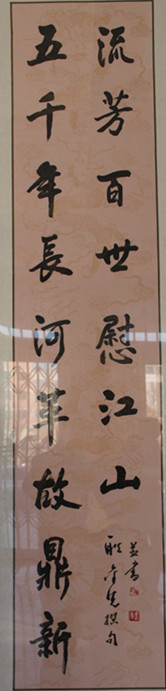 流芳百世慰江山
五千年長河革故鼎新
撰句
并書